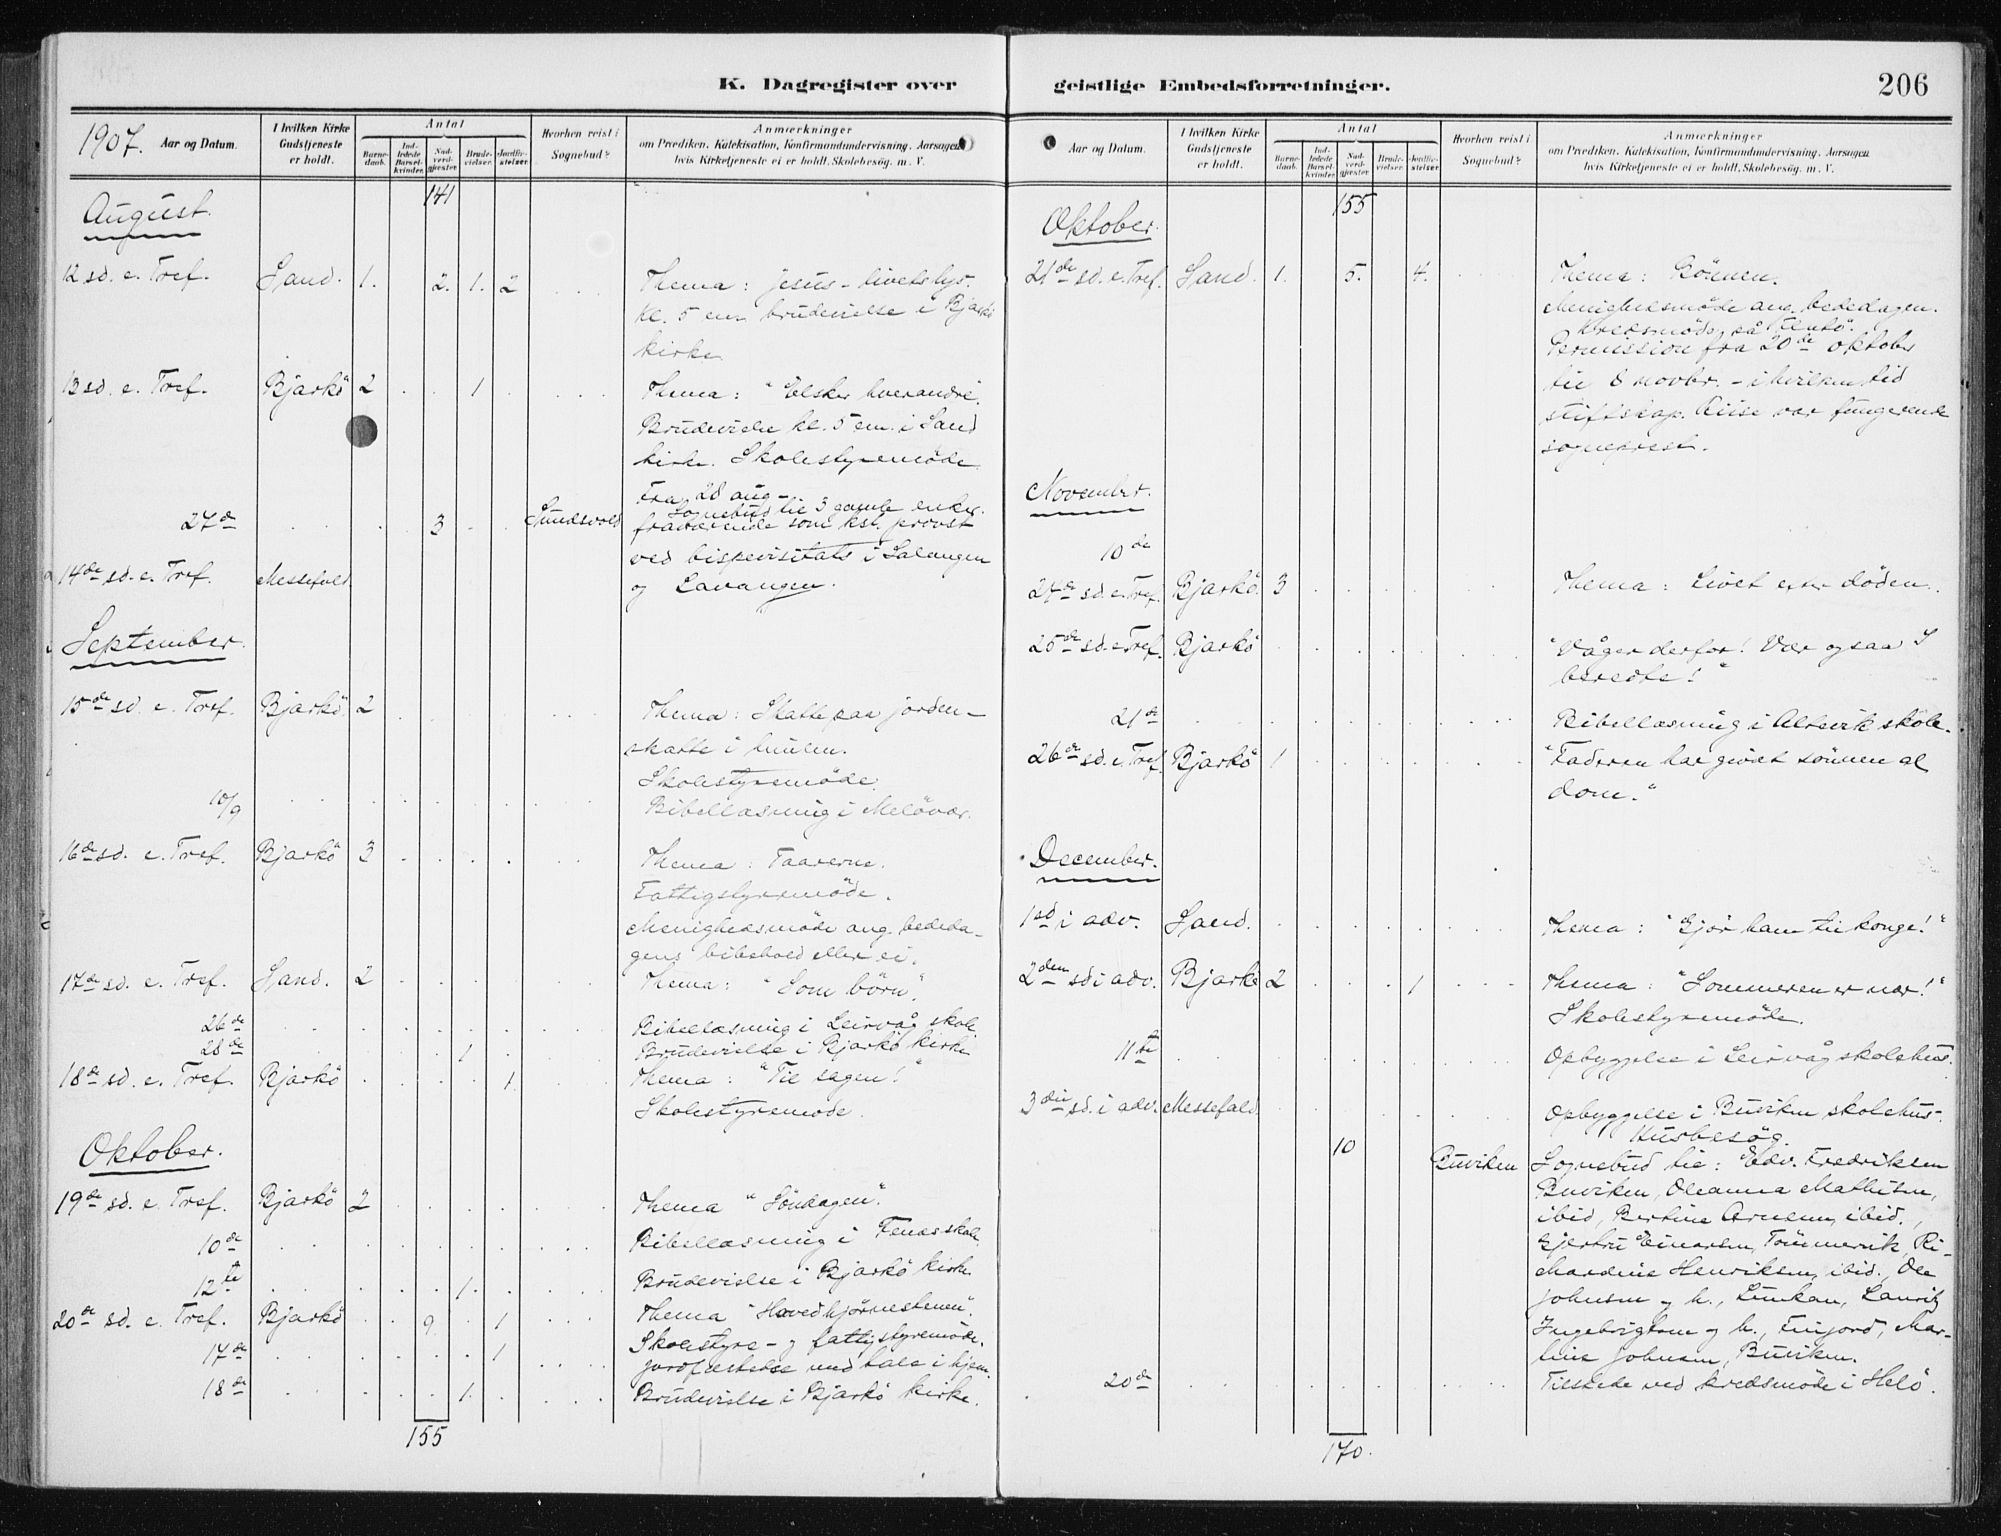 K. Dagregister over
1907. Aar og Datum.
I hvilken Kirke Gudstjeneste er holdt.
Antal
Barne-daab.
Ind-ledede Barsel-kvinder.
Nad-verd-gjæster.
Brude-vielser.
Jordfæ-stelser.
Hvorhen reist i Sognebud?
Anmærkninger
om Prædiken. Katekisation, Konfirmandundervisning. Aarsagen
hvis Kirketjeneste ei er holdt. Skolebesög. m. V.
141
August.
12 sd. e. Tref. Sand. 1. 2. 1. 2 Thema: Jesus - livets lys.
kl. 5 em. brudevielse i Bjarkö
kirke.
13 sd. e. Tref. Bjarkö 2 1 Thema: "Elsker hverandre".
Brudevielse kl. 5 em. i Sand
kirke. Skolestyremöde.
Fra 28 aug -
27de 3 Sundsvold Sognebud til 3 gamle enker.
fraværende som kst. provst
ved bispevisitats i Salangen
14de sd. e. Tref. Messefald.
og Lavangen.
September.
15de sd. e. Tref. Bjarkö 2 Thema: Skatte paa jorden -
skatte i himlen.
Skolestyremöde.
10/9 Bibellæsning i Melövær.
16de sd. e. Tref. Bjarkö 3 Thema: Taarerne.
Fattigstyremöde.
Menighedsmöde ang. bededa-
gens bibehold eller ei.
17de sd. e. Tref. Sand. 2 Thema: "Som börn".
26de Bibellæsning i Leirvåg skole
28de 1 Brudevielse i Bjarkö kirke
18de sd. e. Tref. Bjarkö 1. Thema: "Til sagen!"
Skolestyremöde.
Oktober.
19de sd. e. Tref. Bjarkö 2 Thema "Söndagen".
10de Bibellæsning i Fenes skole.
12te 1. Brudevielse i Bjarkö kirke
20de sd. e. Tref. Bjarkö 9. 1 Thema "Hovedhjørnestenen".
Skolestyre- og fattigstyremöde.
17de 1 Jordfæstelse med tale i hjem.
18de 1. Brudevielse i Bjarkö kirke.
155
geistlige Embedsforretninger.
206
Aar og Datum.
I hvilken Kirke Gudstjeneste er holdt.
Antal
Barne-daab.
Ind-ledede Barsel-kvinder.
Nad-verd-gjæster.
Brude-vielser.
Jordfæ-stelser.
Hvorhen reist i Sognebud?
Anmærkninger
om Prædiken. Katekisation, Konfirmandundervisning. Aarsagen
hvis Kirketjeneste ei er holdt. Skolebesög. m. V.
155
Oktober.
21de sd. e. Tref. Sand. 1. 5. 4. Thema: Bönnen.
Menighedsmöde ang. bededagen.
Kredsmöde på
Permission fra 20de oktober
til 8 novbr. - i hvilken tid
stiftskap. Riise var fungerende
sogneprest.
November.
10de
24de sd. e. Tref. Bjarkö. 3 Thema: Livet efter döden.
25de sd. e. Tref. Bjarkö "Våger derfor! Vær ogsaa I
beredte!"
21de Bibellæsning i Altevik skole.
26de sd. e. Tref. Bjarkö 1 "Faderen har givet sönnen al
dom."
December.
1sd i adv. Sand. Thema: "Gjör ham til konge!"
2den sd i adv. Bjarkö 2 1 Thema: "Sommeren er nær!"
Skolestyremöde.
11te Opbyggelse i Leirvåg skolehus.
3die sd. i adv. Messefald. Opbyggelse i Buviken skolehus.
Husbesög.
10 Buviken Sognebud til: Edv. Fredriksen
Buviken, Oleanna Mathisen,
ibid, Bertine Arnesen, ibid.,
Gjertru Einarsen, Tömmervik, Ri-
Mardine Henriksen, ibid., Ole
Johnsen og h., Lunkan, Lauritz
Ingebrigtsen og h., Finjord, Mar-
line Johnsen, Buviken.
20de Tilstede ved kredsmöde i Helö.
170.